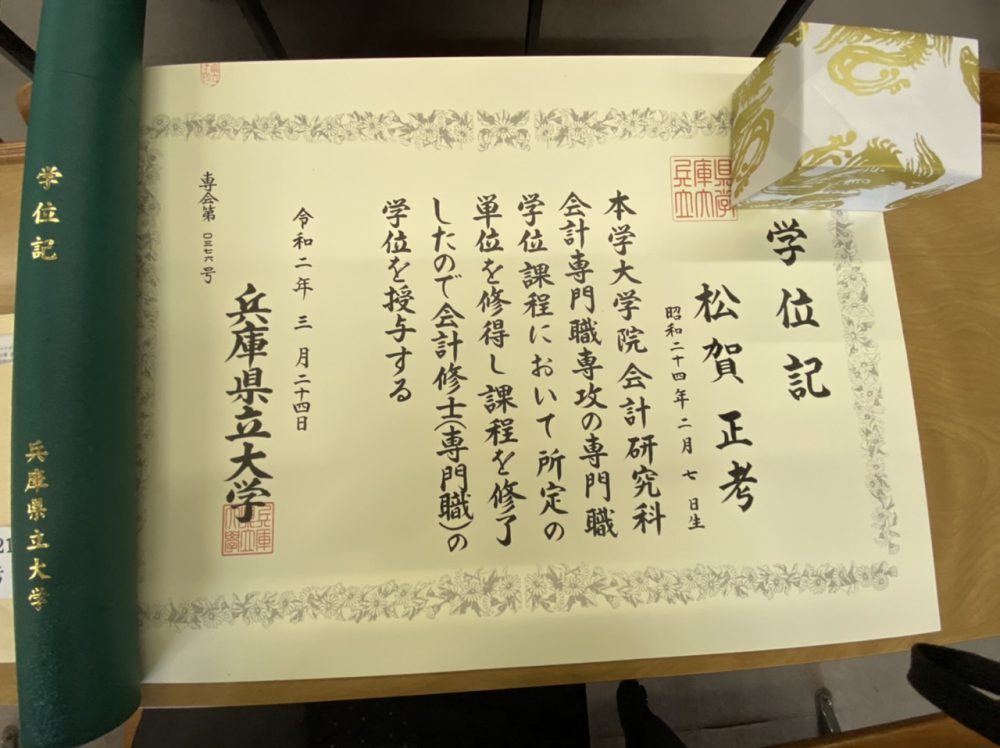 学位記
松賀正考
昭和二十四年二月七日生
本学大学院会計研究科
会計専門職専攻の専門職
学位課程において所定の
単位を修得し課程を修了
したので会計修士(専門職)の
学位を授与する
令和二年三月二十四日
兵庫県立大学
専会第〇三七六号
学位記
兵庫県立大学
21